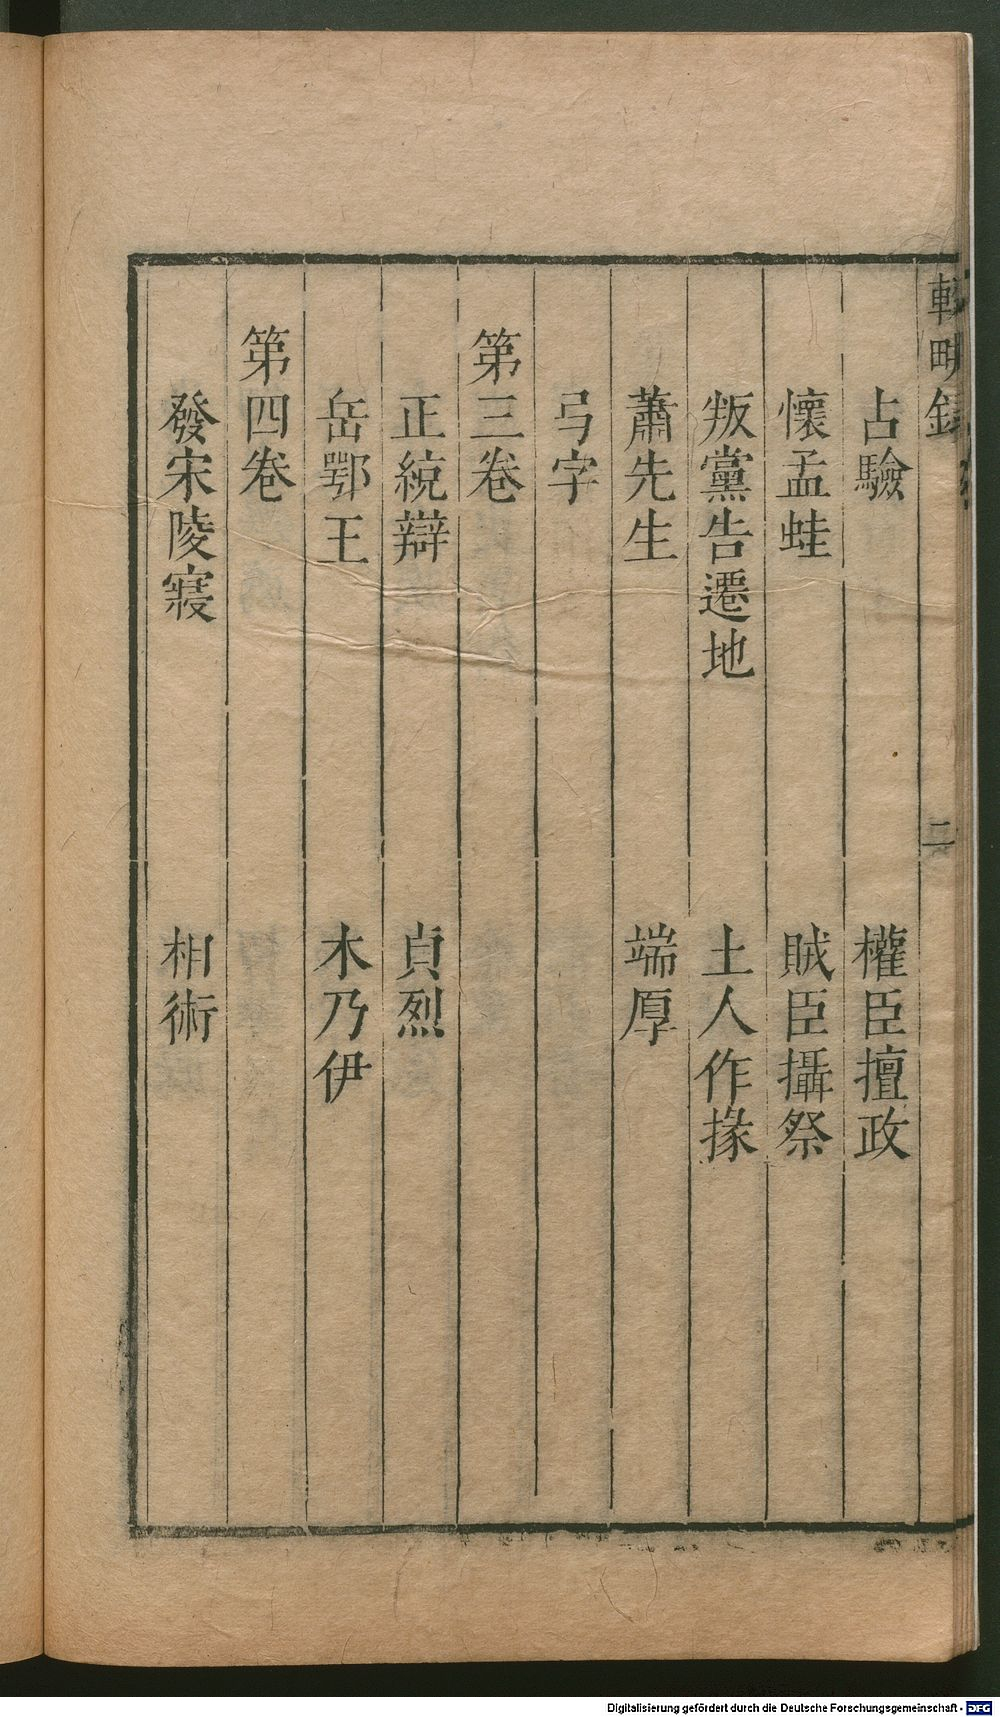 輟畊錄
二
占驗 權臣擅政
懷孟蛙 賊臣攝祭
叛黨告遷地 土人作掾
蕭先生 端厚
弓字
第三卷
正統辯 貞烈
岳鄂王 木乃伊
第四卷
發宋陵寢 相術
Digitalisierung gefördert durch die Deutsche Forschungsgemeinschaft - DFG